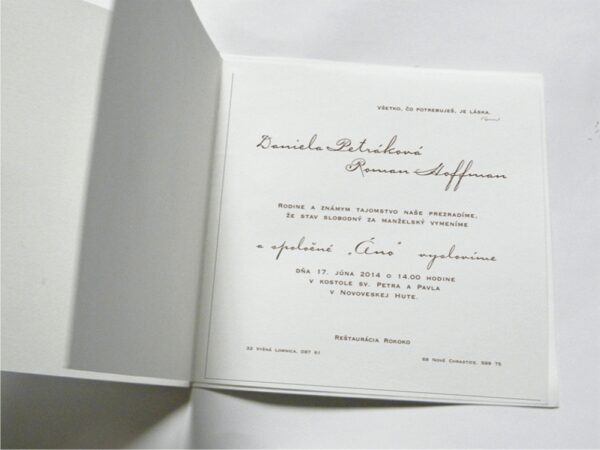 VŠETKO, ČO POTREBUJEŠ, JE LÁSKA.
Daniela Petráková
Roman Hoffman
RODINE A ZNÁMYM TAJOMSTVO NAŠE PREZRADÍME,
ŽE STAV SLOBODNÝ ZA MANŽELSKÝ VYMENÍME
a spoločné „Áno" vyslovíme
DŇA 17. JÚNA 2014 O 14.00 HODINE
V KOSTOLE SV. PETRA A PAVLA
V NOVOVESKEJ HUTE.
REŠTAURÁCIA ROKOKO
32 VYŠNÁ LOMNICA, 087 61
58 NOVÉ CHRASTICE, 589 75